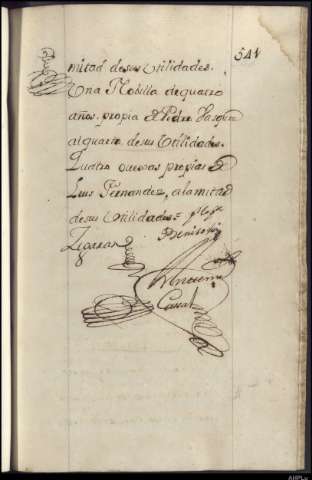 541
mitad desus Utilidades.
Una Nobilla de quatro
años, propia de Pedro Vasquez
al quarto desus Utilidades.
Quatro ouexas propias de
Luis Fernandez, a la mitad
desus Utilidades=
Vicente
Casal
AHPLu